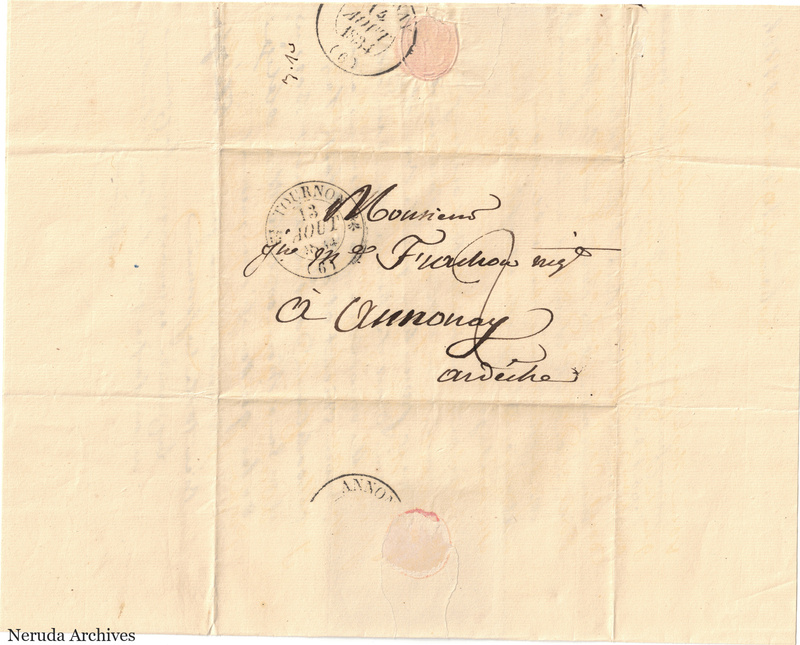 14
AOUT
1834
(6)
TOURNON
13
AOUT
1834
(6)
Monsieur
Frachon
à Annonay
ardèche
ANNON
Neruda Archives